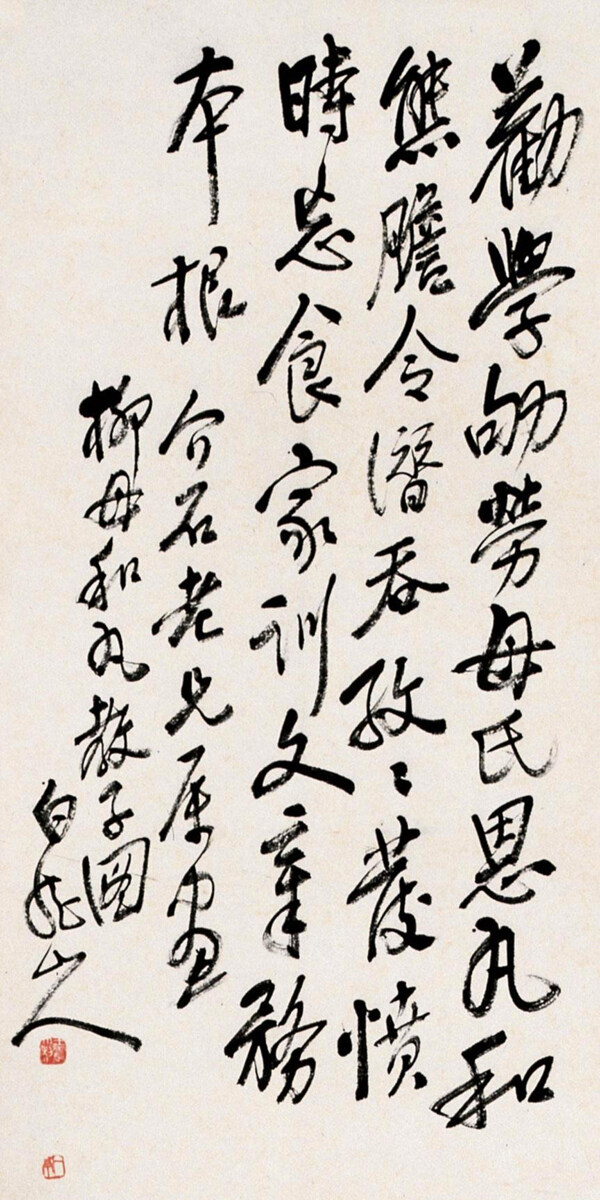 勸學劬勞母氏恩丸和
熊膽令潛吞孜々發憤
時忘食家訓文章務
本根
介石老兄属画
柳母和丸教子圖
白龍山人